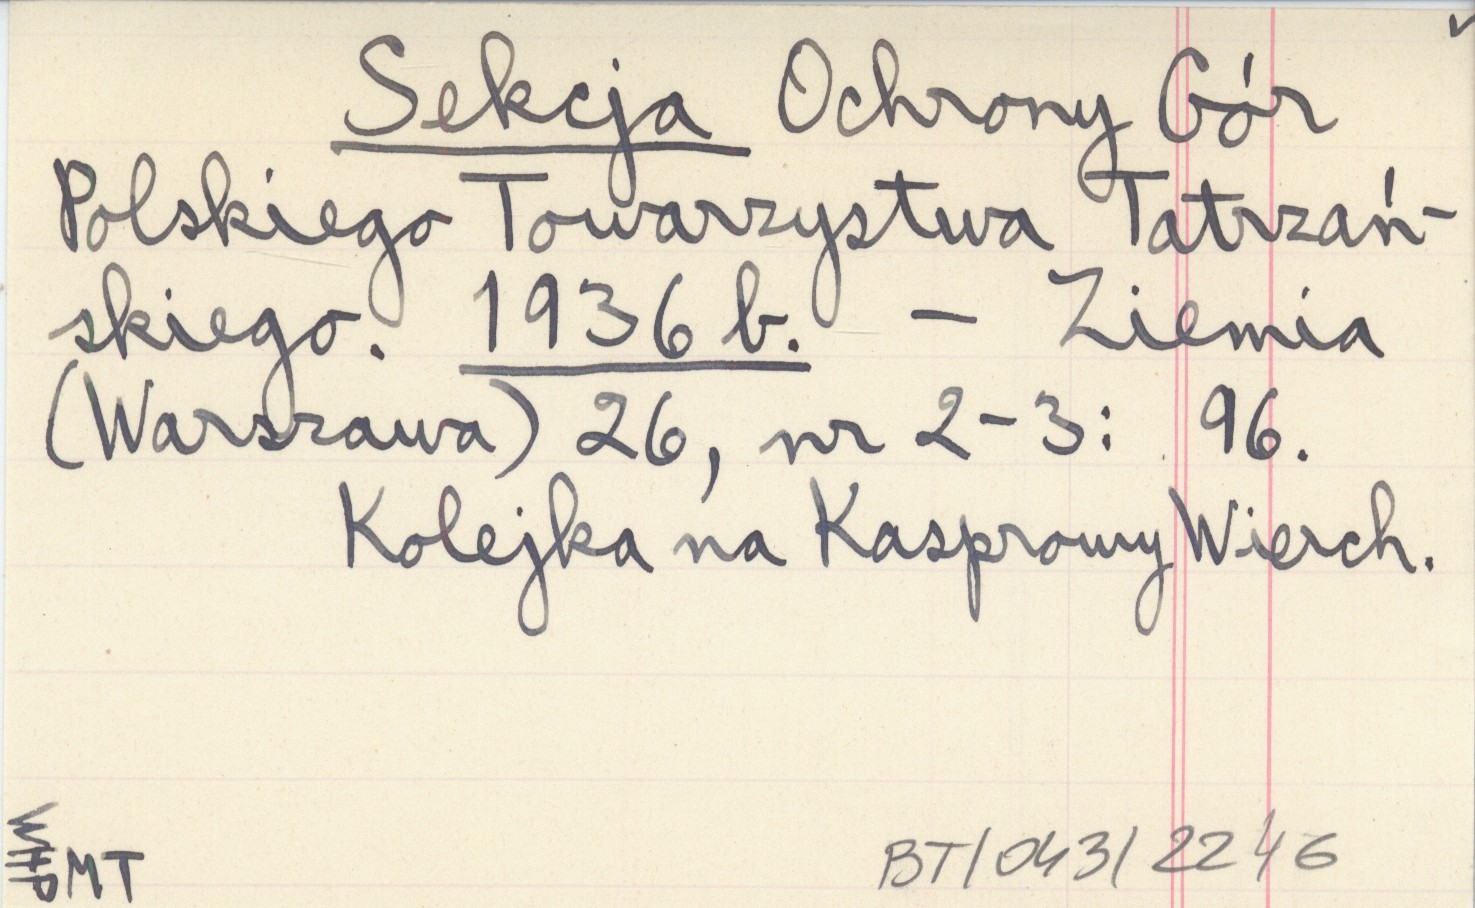 Sekcja Ochrony Gór
Polskiego Towarzystwa Tatrzań-
skiego. 1936 b. — Ziemia
(Warszawa) 26, nr 2-3: 96.
Kolejka na Kasprowy Wierch.
MT
BT/043/2246